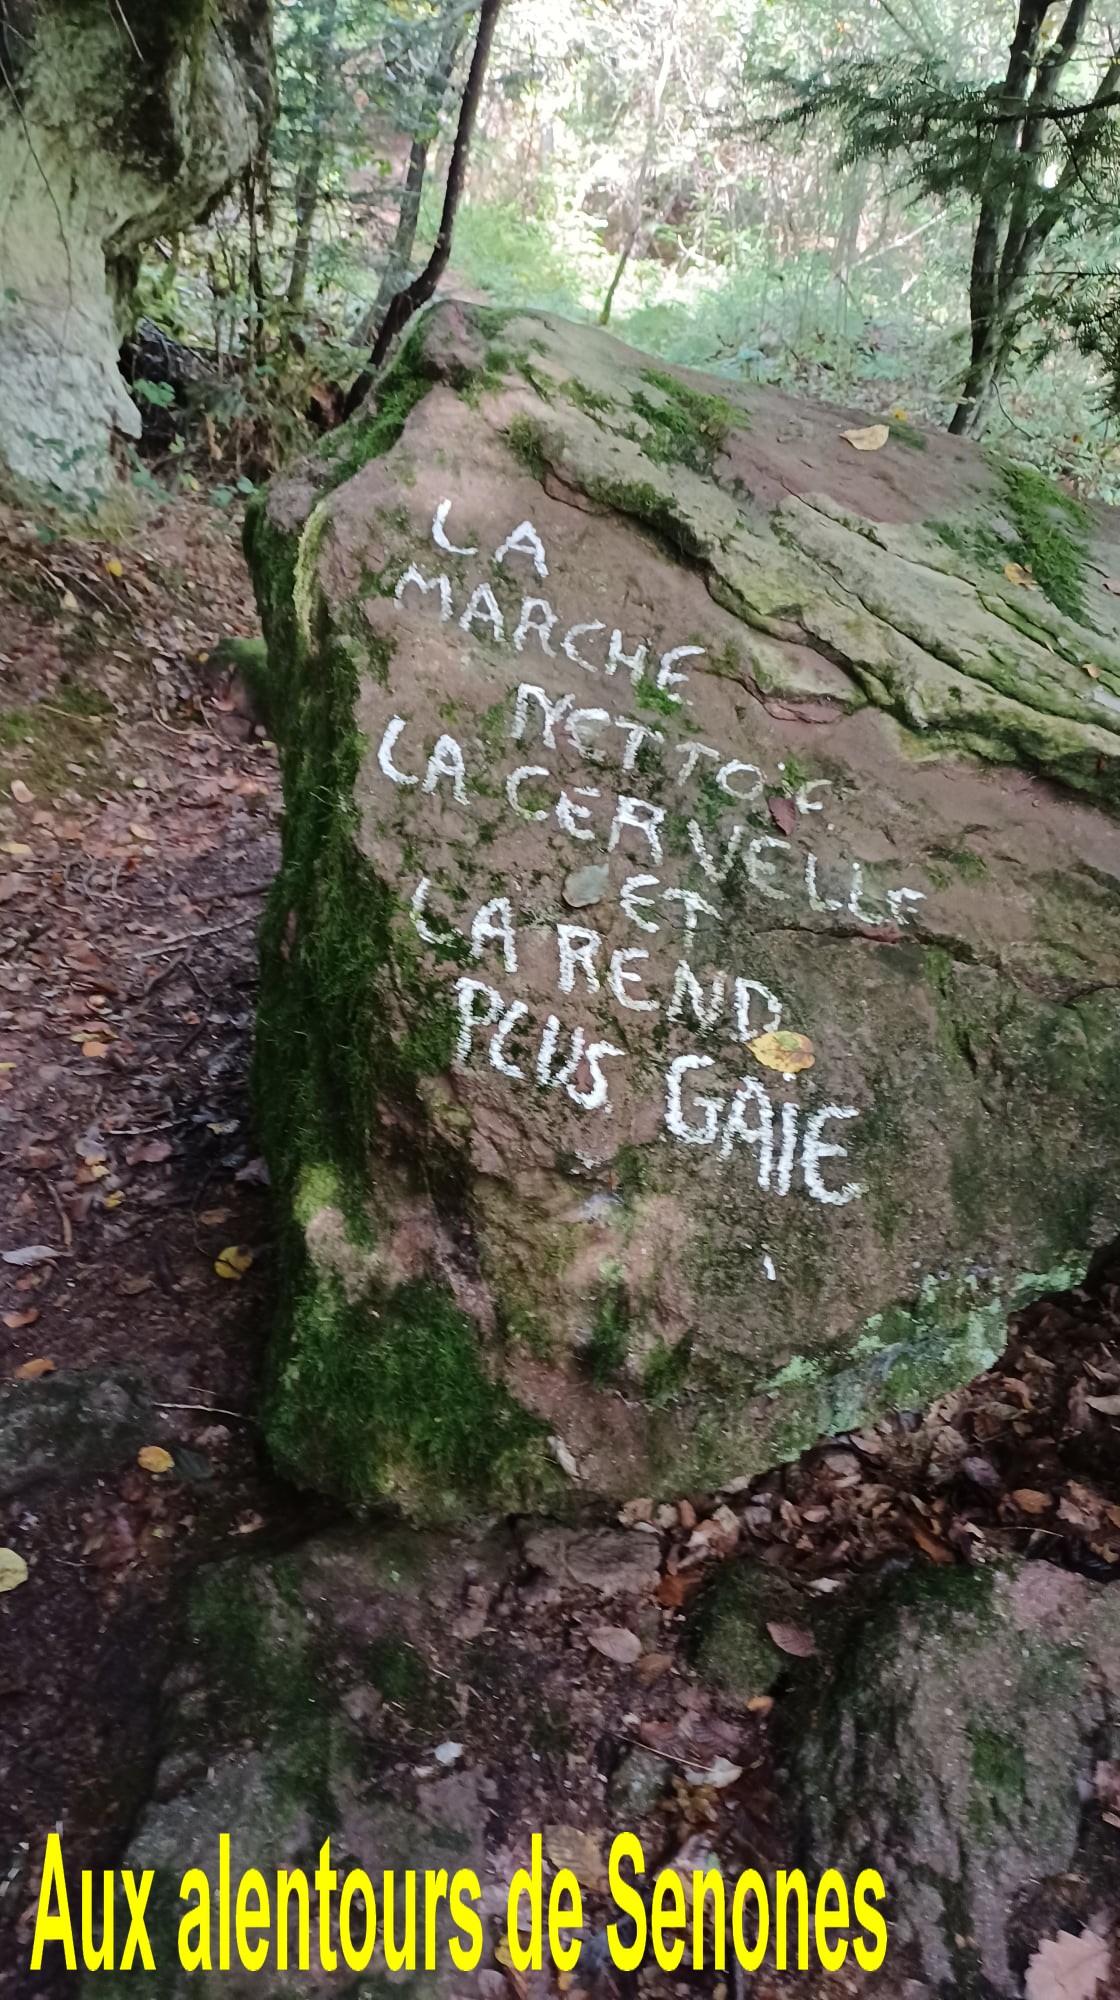 LA
MARCHE
NETTOIE
LA CERVELLE
ET
LA REND
PLUS GAÏE
Aux alentours de Senones